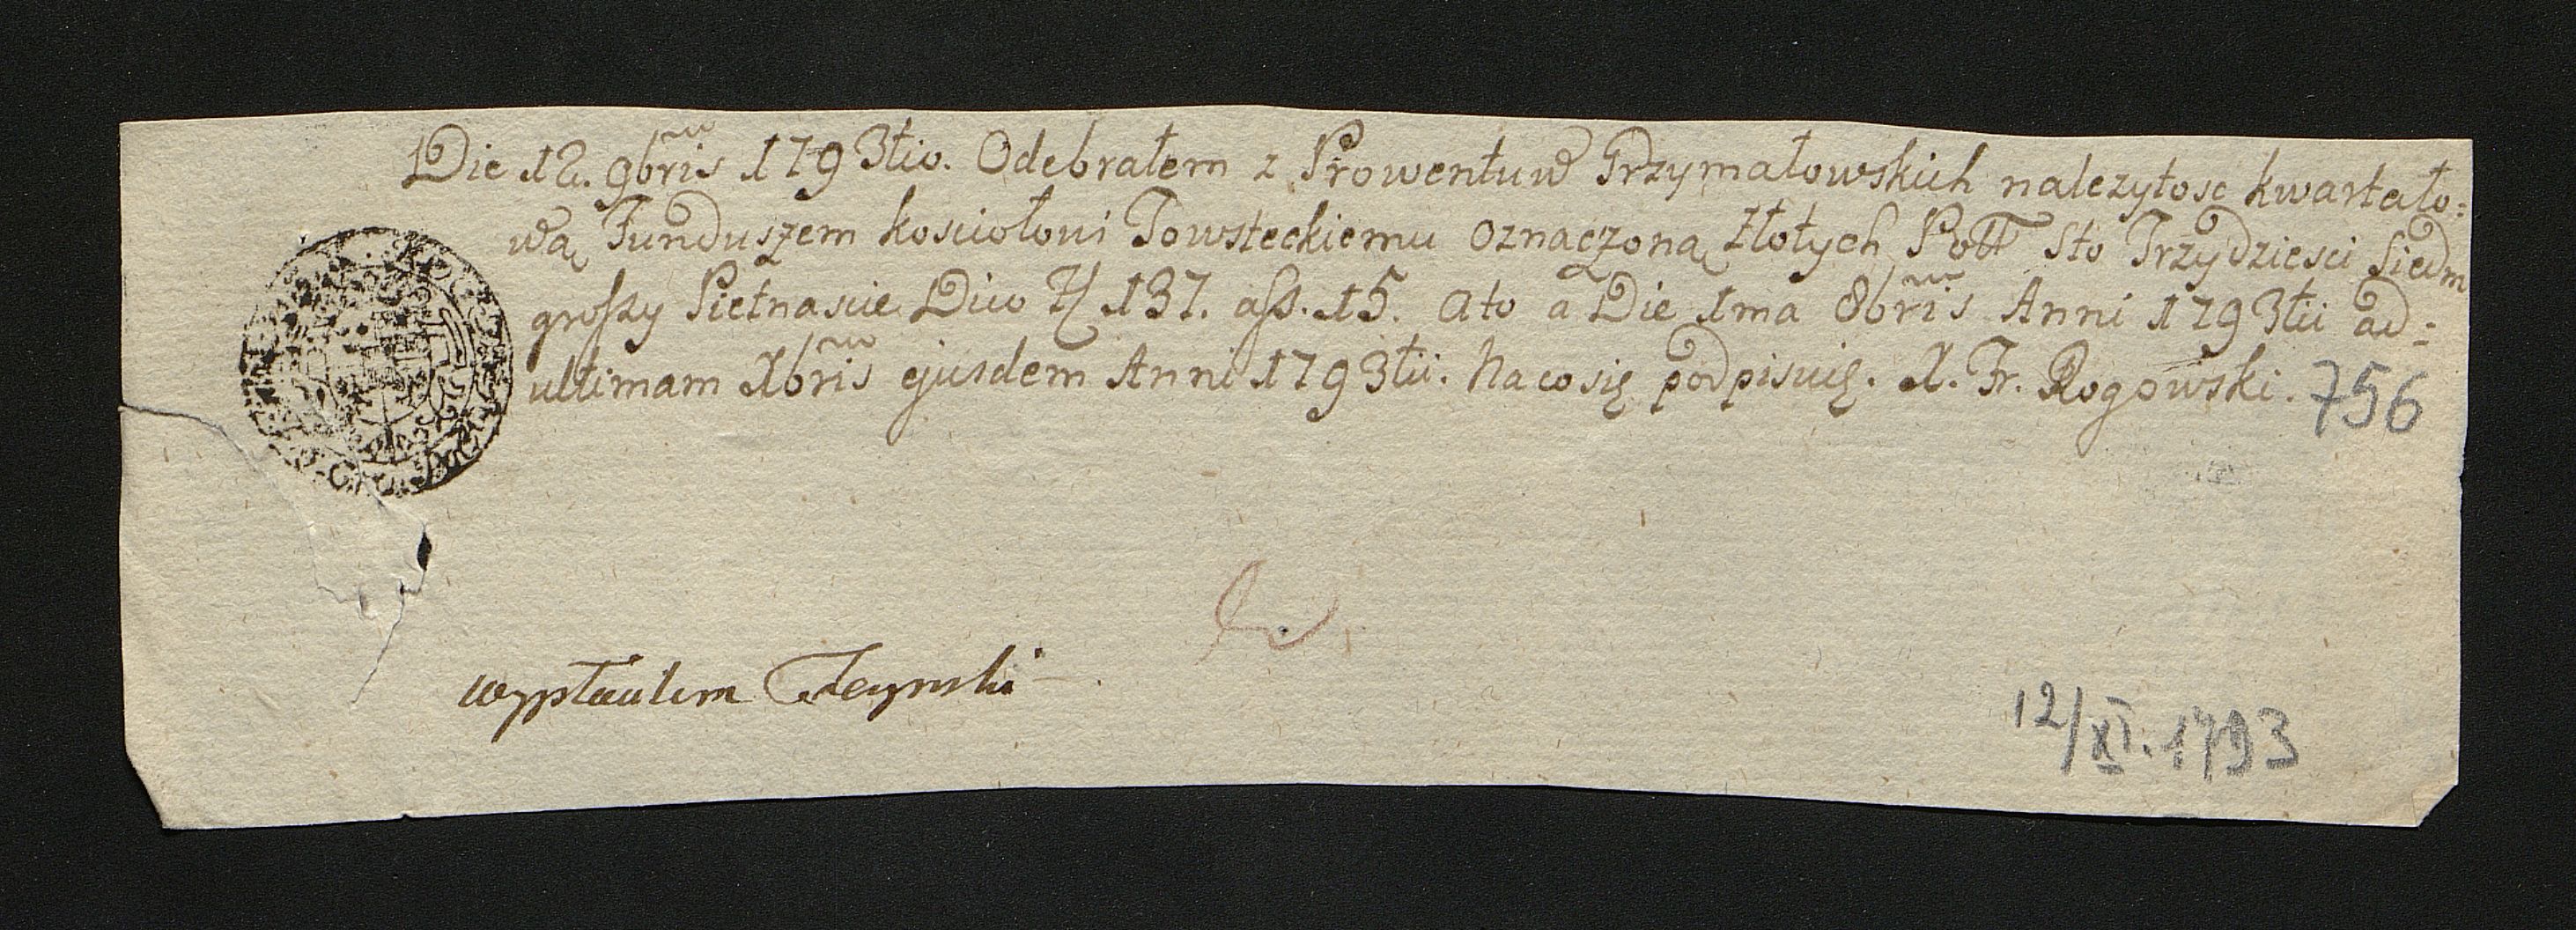 Die 12. 9bris 1793tio. Odebrałem z Prowentuw Grzymałowskich nalezytosc kwartało:
wą Funduszem kosciołowi Towsteckiemu oznaczoną Złotych Poll Sto Trzydziesci siedm
groszy Pietnascie Dico Zł 137. ass. 15. a to a Die 1ma 8bris Anni 1793tii ad:
ultimam Xbris ejusdem Anni 1793tii. Na co się podpisuię. X. Fr. Rogowski.
756
wypłaciłem
12/XI. 1793